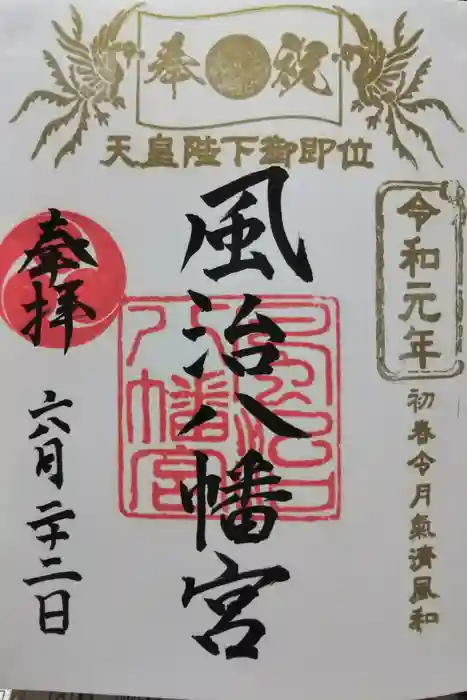 奉祝
天皇陛下御即位
令和元年
初春令月氣淸風和
風治八幡宮
風治八幡宮
奉拝
六月二十二日